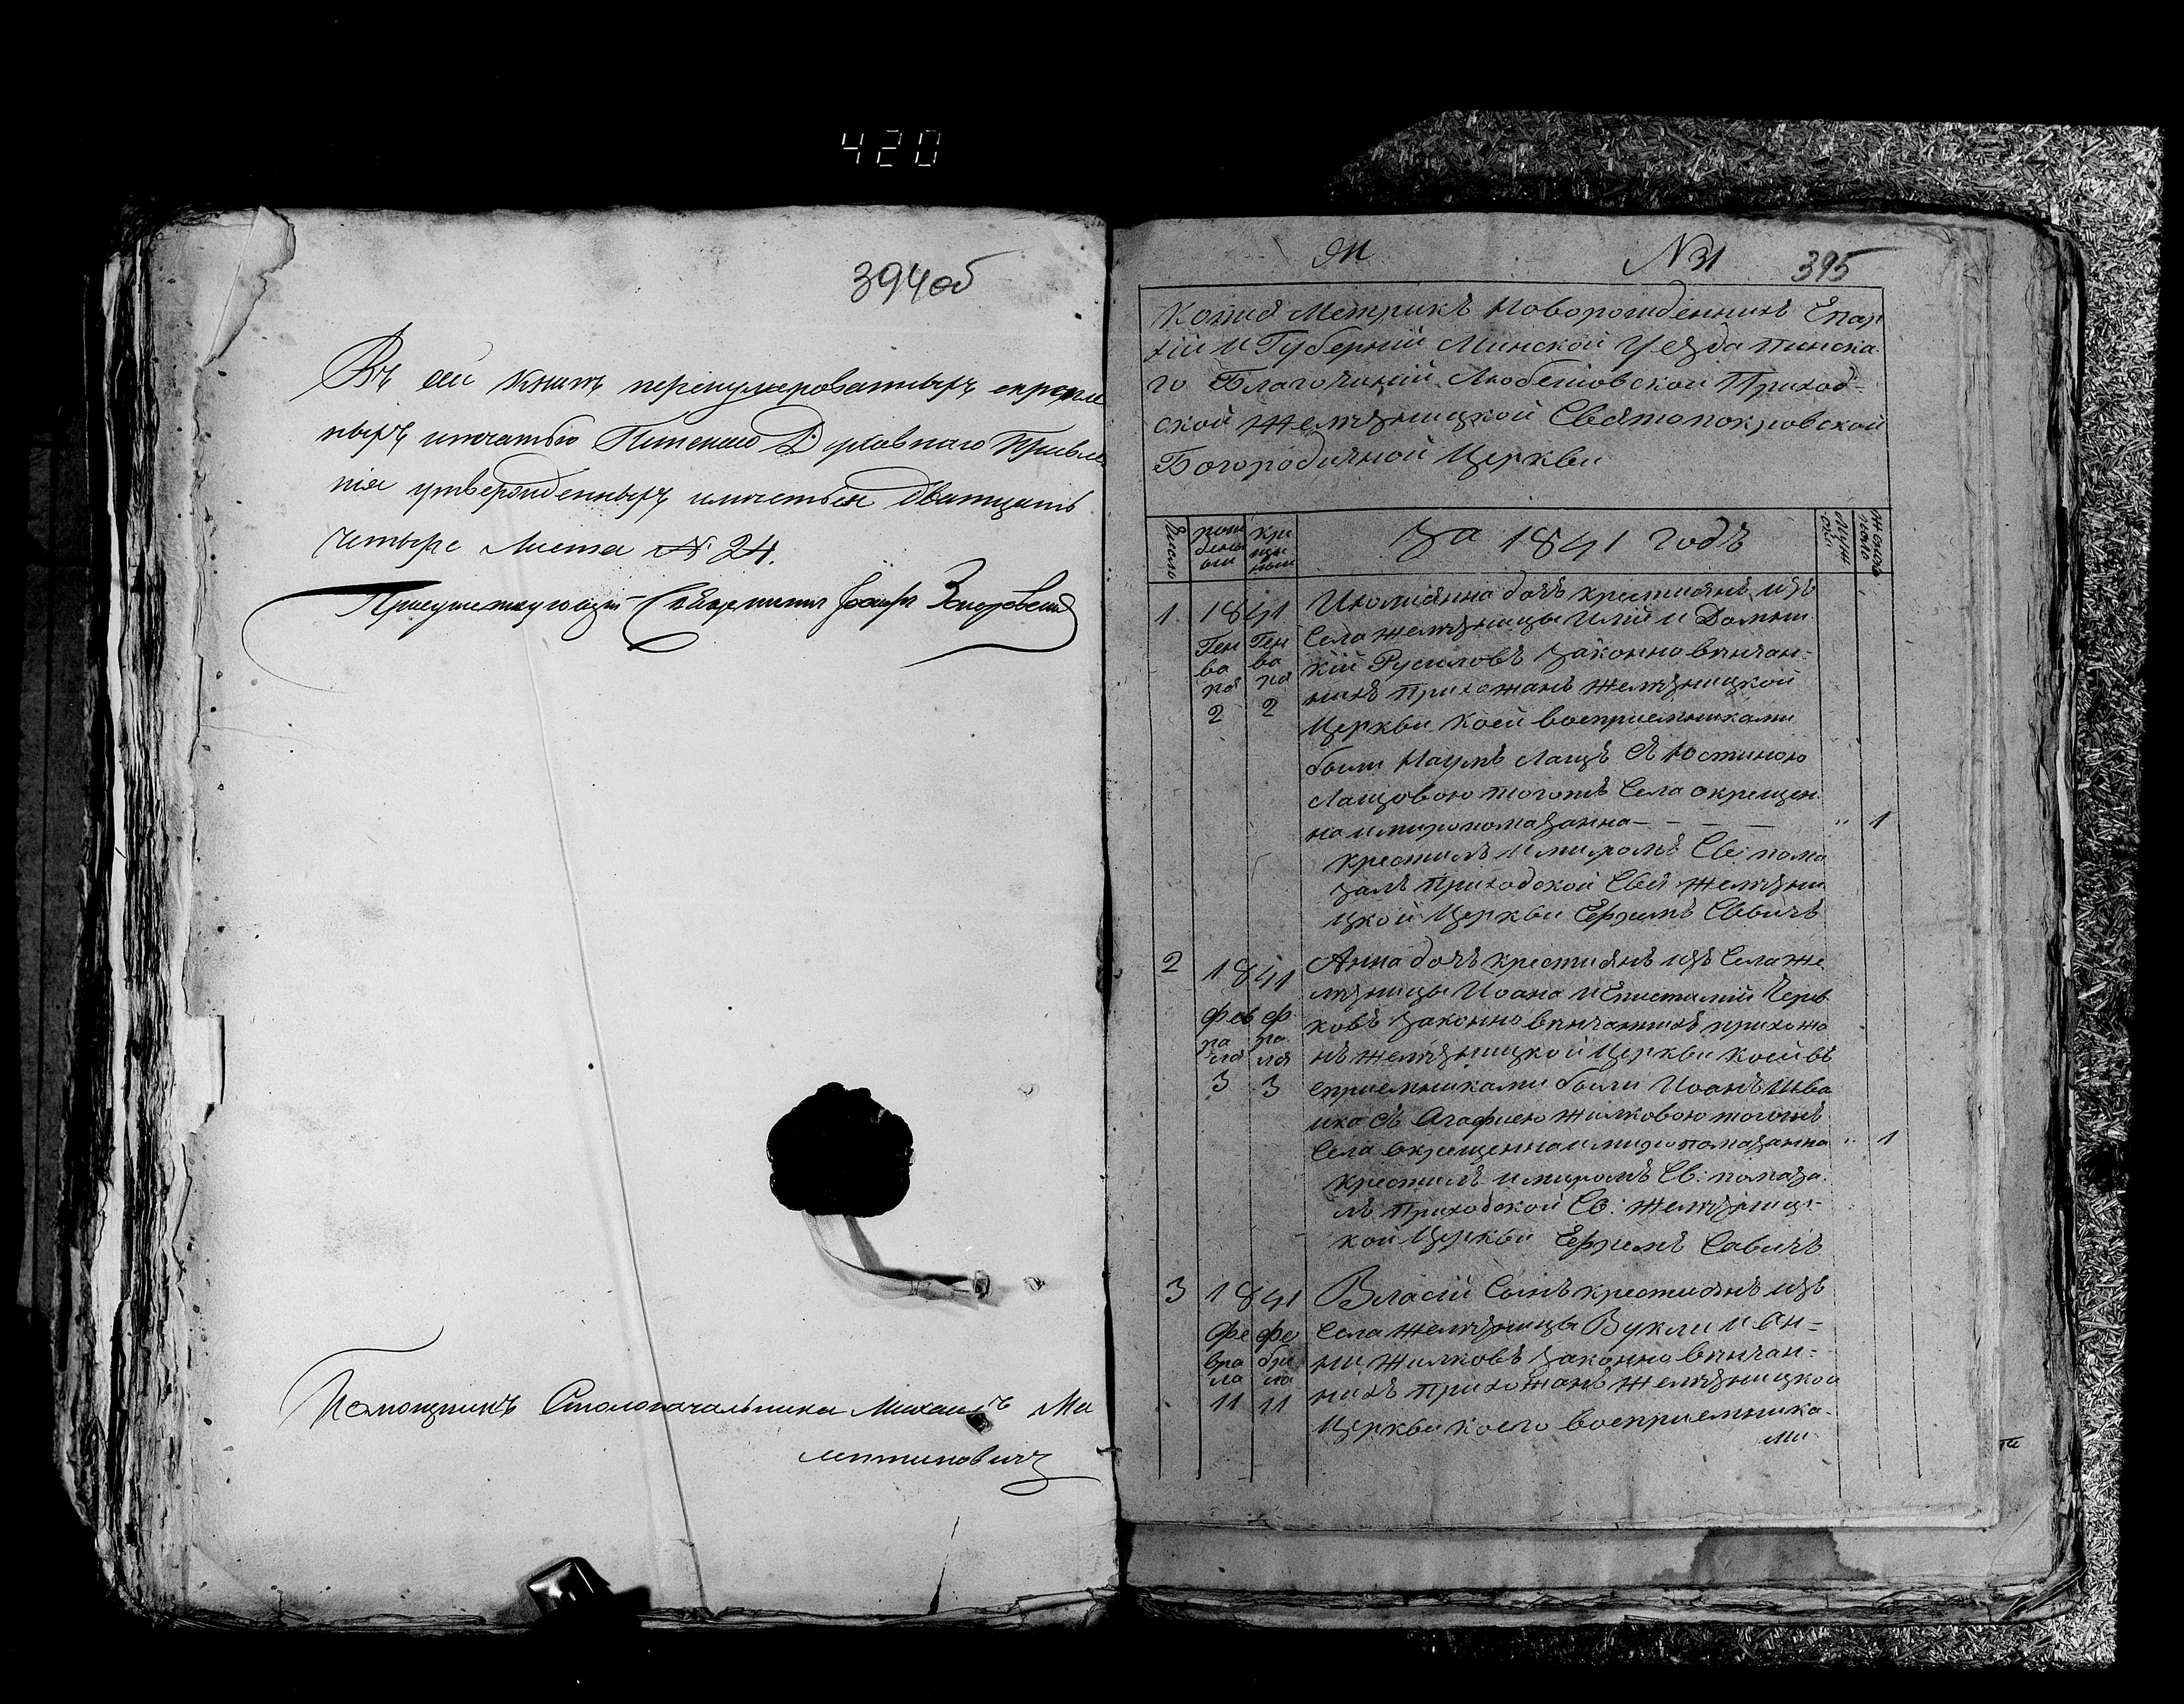 420
394об
Въ сей книгѣ перенумерованныхъ скрепле
ныхъ печатью Пинского Духовнаго Правле
нія утвержденныхъ имѣетъся дватцать
четыре листа № 24.
Присутствующій Священникъ
Помощникъ Столоначальника Михаилъ Ма
М №1 395
Копия Метрикъ Новорожденнихъ Епар
хіи и Губерніи Минской Уезда Пинска
го Благочинія Любешовской Приход
ской Желѣзницкой Святопокровской
Богородичной Церкви
Число рож денни кре щен ныи За 1841 годъ Муж ска Женска
1 1841 Генваря 2 Генваря 2
Июлиянна дочъ крестиянъ изъ
Села желѣзницы Илии и Домни
кіи Русиловъ законно вѣнчан-
нихъ Прихожанъ Желѣзницкой
Церкви коей восприемниками
были Наумъ Лащъ съ Юстиною
Лащовою тогожъ Села окрещен
на и миропомазанна - - - - " 1
крестилъ и миромъ Св: пома
залъ Приходской Свя Желѣзни
цкой Церкви Ефремъ Савичъ
2 1841 Февраля 3 Февраля 3
Анна дочъ крестиянъ изъ Села Же
лѣзницы Иоана и Епистиміи
ковъ законно вѣнчаннихъ прихожа
нъ желѣзницкой Церкви коей въ
сприемниками были Иоанъ Ива
шко съ Агафиею Жилковою тогожъ
Села окрещенна и миропомазанна " 1
крестилъ и миромъ Св: помаза
лъ Приходской Св: Желѣзниц-
кой Церкви Ефремъ Савичъ
3 1841 Февраля 11 Февраля 11
Власій Сынъ крестиянъ изъ
Села Желѣзницы Вукли и Ан-
ни Жилковъ законно вѣнчан-
нихъ Прихожанъ Желѣзницкой
Церкви коего восприемника-
ми